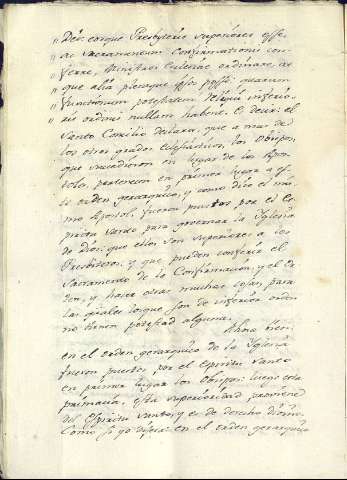 " Dei: eosque Presbyteris superiores esse,
" ac Sacramentum Confirmationis con-
" ferre, Ministros Ecclesiæ ordinare, at-
" que alia pleraque ipsos posse: quarum
" functionum potestatem reliqui inferio-
" ris ordinis nullam habent. Es decir: el
Santo Concilio declara, que a mas de
los otros grados Eclesiasticos, los Obispos,
que sucedieron en lugar de los Apos-
toles, pertenecen en primer lugar a es-
te orden gerarquico, y como dice el mis-
mo Apostol, fueron puestos por el Es-
piritu Santo para governar la Iglesia
de Dios: que ellos son superiores a los
Presbiteros, y que pueden conferir el
Sacramento de la Confirmacion, y el Or-
den, y hacer otras muchas cosas, para
las quales los que son de inferior orden
no tienen potestad alguna.
Ahora bien:
en el orden gerarquico de la Iglesia
fueron puestos por el Espiritu Santo
en primer lugar los Obispos: luego esta
primacia, esta superioridad proviene
del Espiritu Santo, y es de derecho divino.
Como si yo dixera: en el orden gerarquico